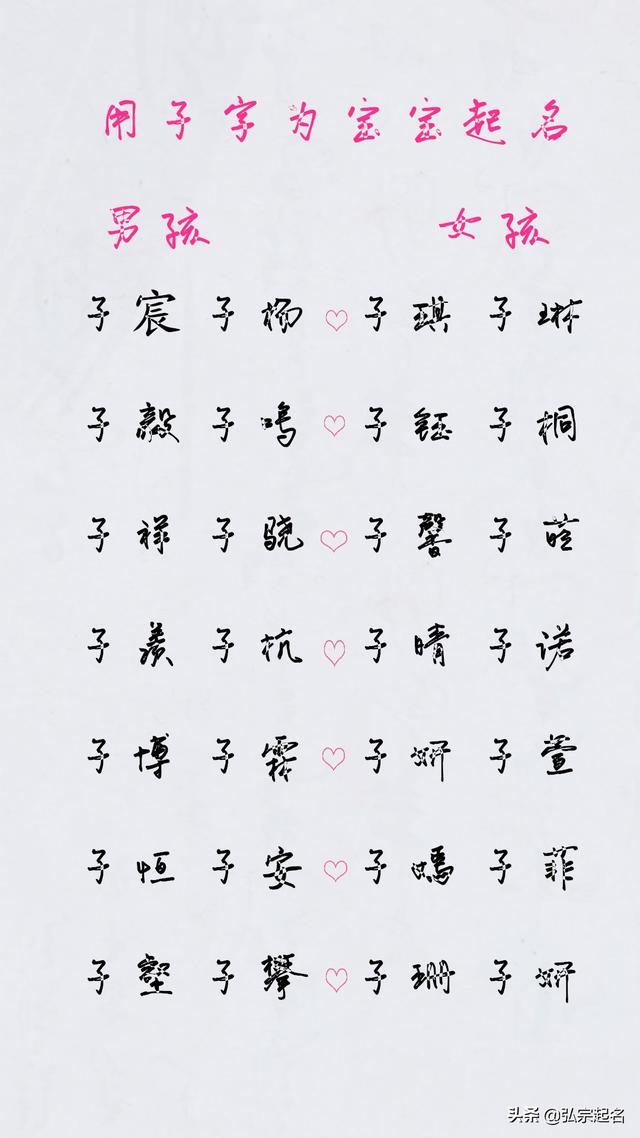 用子字为宝宝起名
男孩 女孩
子宸 子杨 ♡ 子琪 子琳
子毅 子鸣 ♡ 子钰 子桐
子禄 子骁 ♡ 子馨 子
子羡 子杭 ♡ 子晴 子诺
子博 子 ♡ 子妍 子萱
子恒 子安 ♡ 子嫣 子菲
子壑 子攀 ♡ 子珊 子妍
头条 @弘宗起名